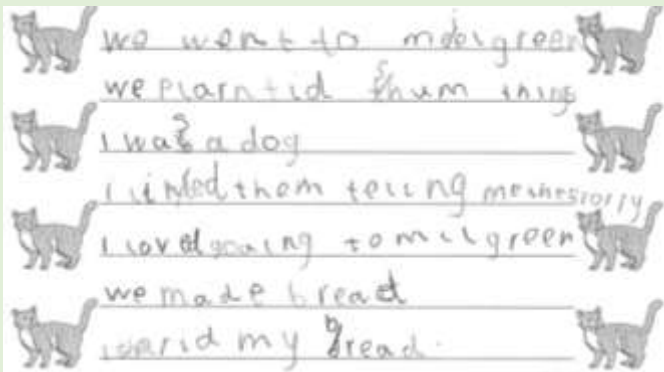 we went to milgreen
we plarntid shum thing
I was a dog
I them teling me the storry
I loved goaing to milgreen
we made bread
my bread.